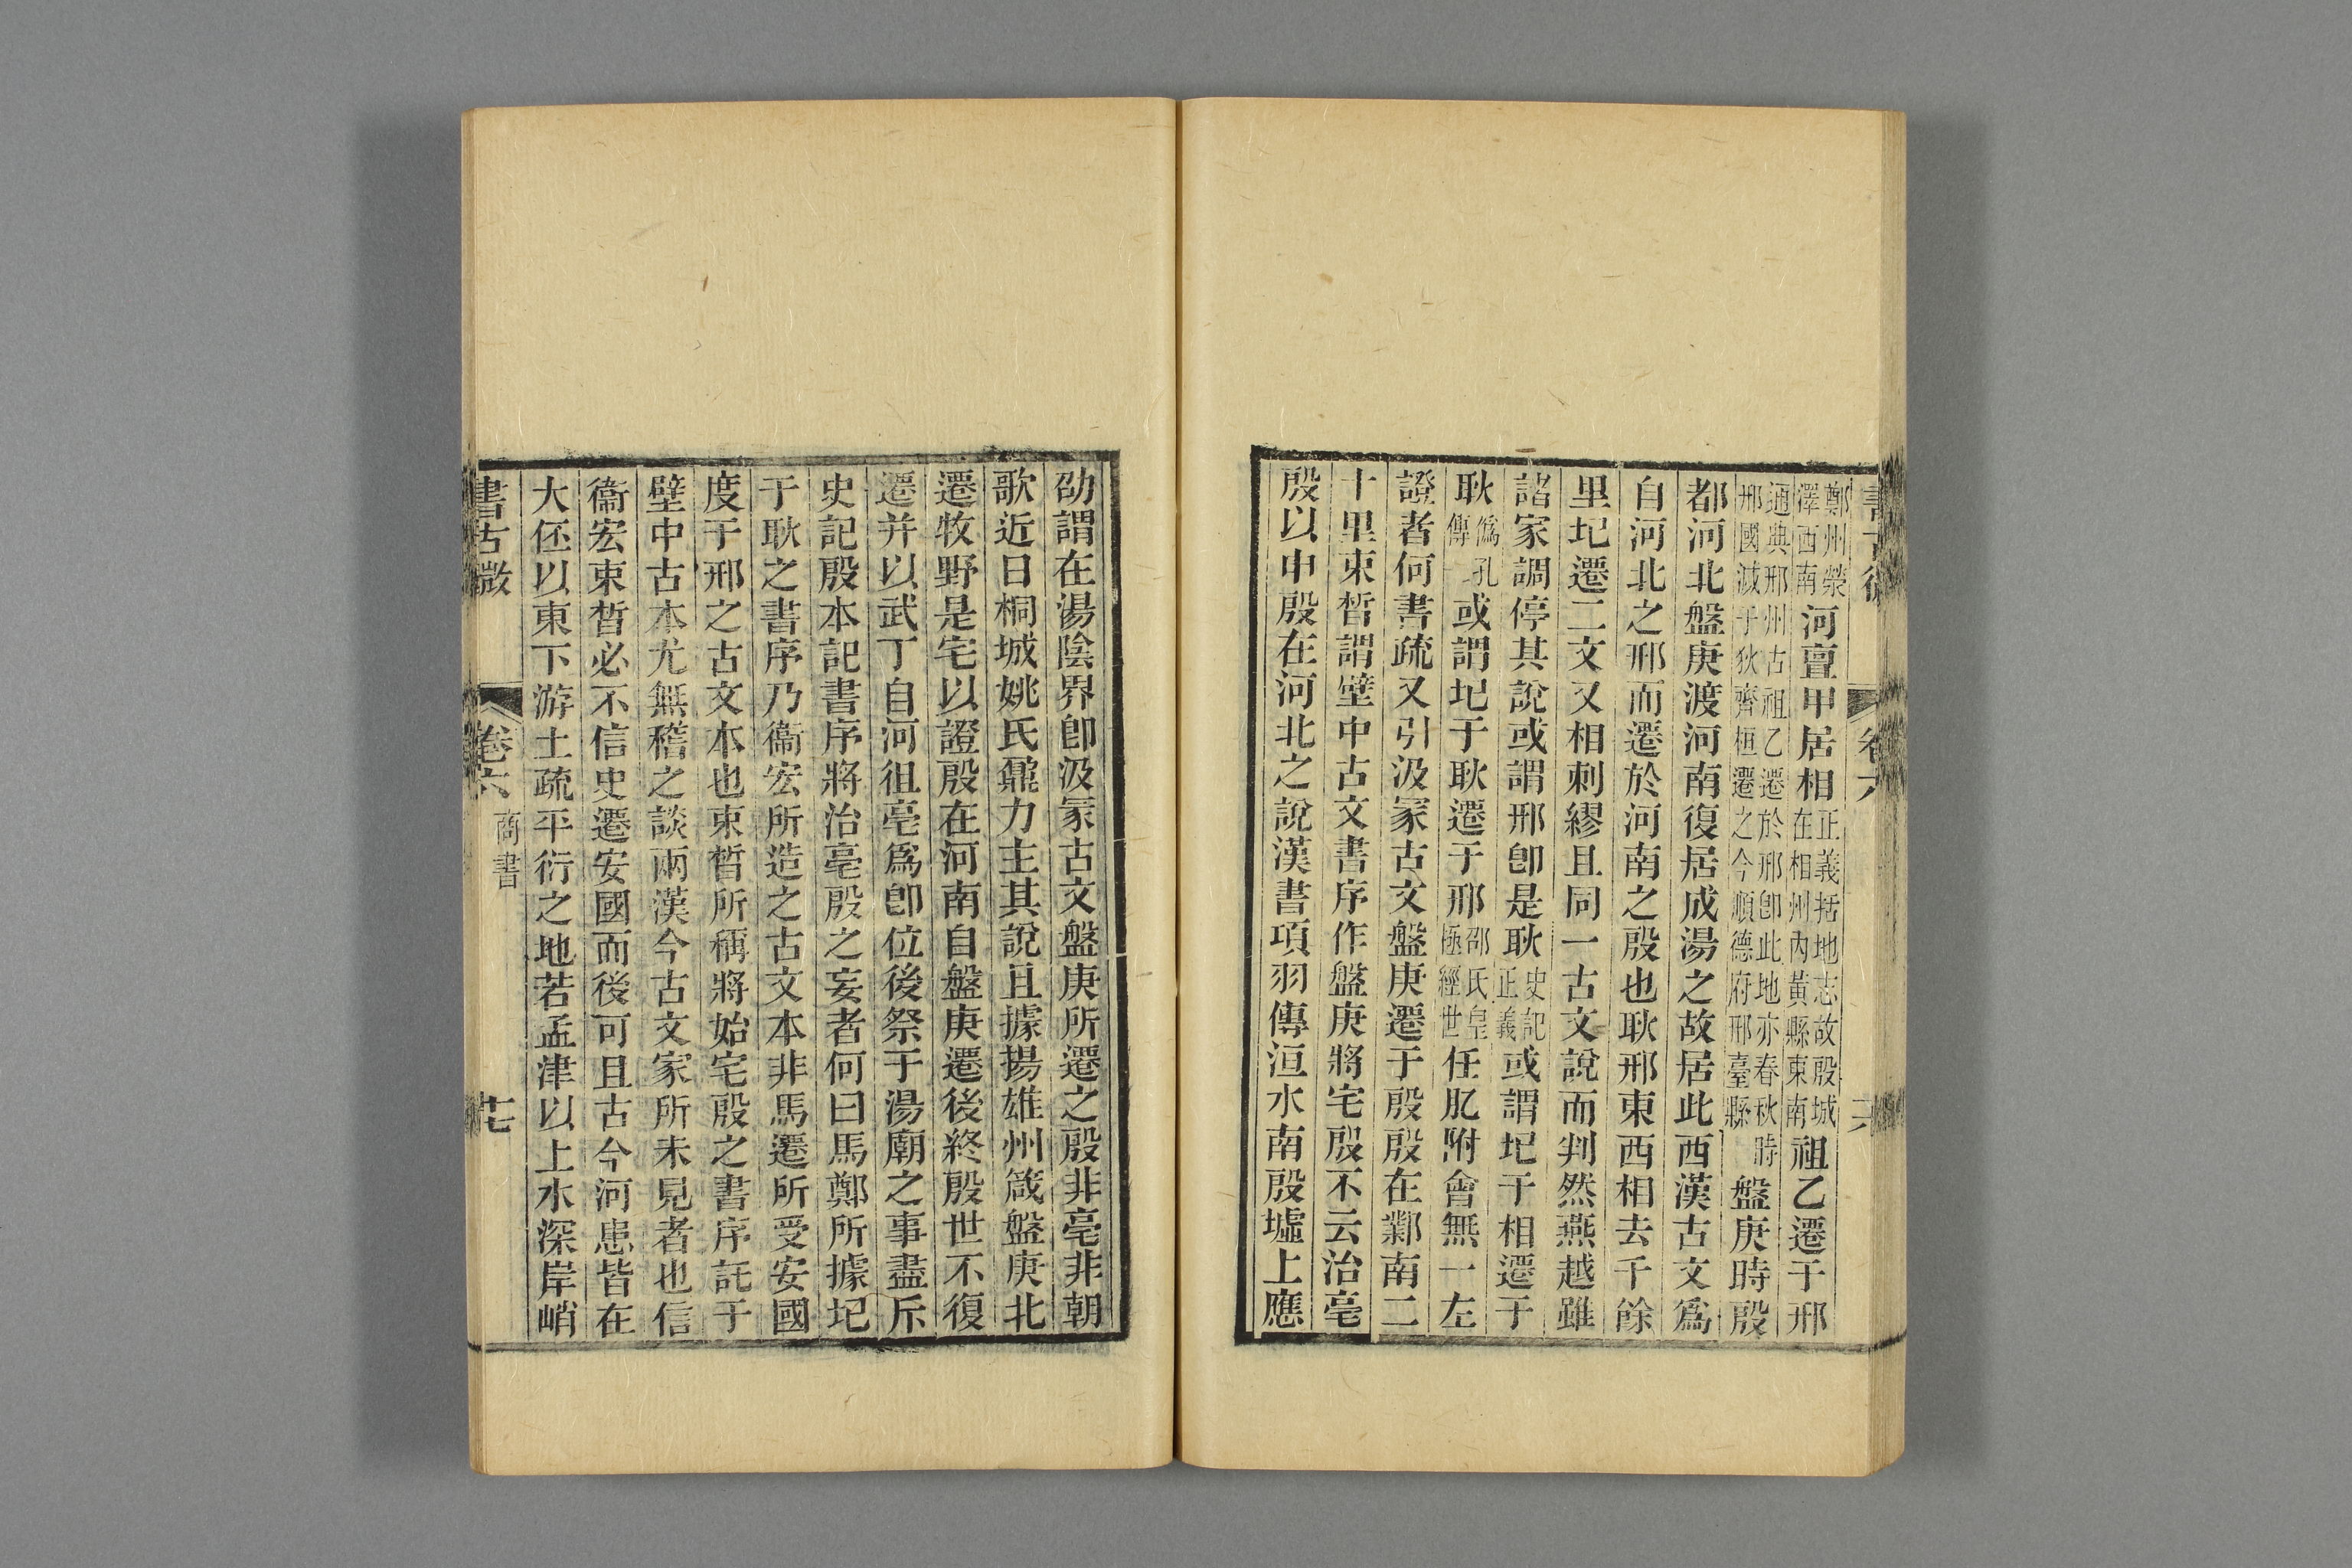 書古微 卷六
鄭州滎澤西南河亶甲居相正義括地志故殷城在相州內黃縣東南祖乙遷于邢
通典邢州古祖乙遷於邢卽此地亦春秋時邢國滅于狄齊桓遷之今順德府邢臺縣盤庚時殷
都河北盤庚渡河南復居成湯之故居此西漢古文爲
自河北之邢而遷於河南之殷也耿邢東西相去千餘
里圮遷二文又相刺繆且同一古文說而判然燕越雖
諸家調停其說或謂邢卽是耿史記正義或謂圮于相遷于
耿僞孔傳或謂圮于耿遷于邢邵氏皇極經世任肊附會無一左
證者何書疏又引汲冢古文盤庚遷于殷殷在鄴南二
十里束晳謂壁中古文書序作盤庚將宅殷不云治亳
殷以申殷在河北之說漢書項羽傳洹水南殷墟上應
劭謂在湯陰界卽汲冢古文盤庚所遷之殷非亳非朝
歌近日桐城姚氏鼐力主其說且據揚雄州箴盤庚北
遷牧野是宅以證殷在河南自盤庚遷後終殷世不復
遷并以武丁自河徂亳爲卽位後祭于湯廟之事盡斥
史記殷本記書序將治亳殷之妄者何曰馬鄭所據圮
于耿之書序乃衞宏所造之古文本非馬遷所受安國
度于邢之古文本也束晳所稱將始宅殷之書序託于
壁中古本尤無稽之談兩漢今古文家所未見者也信
衞宏束晳必不信史遷安國而後可且古今河患皆在
大伾以東下游土疏平衍之地若孟津以上水深岸峭
書古微 卷六 商書 十七